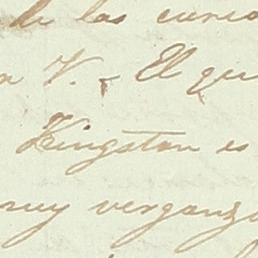 de las curio
n V. - El qu
Kingston es
muy vergonzo